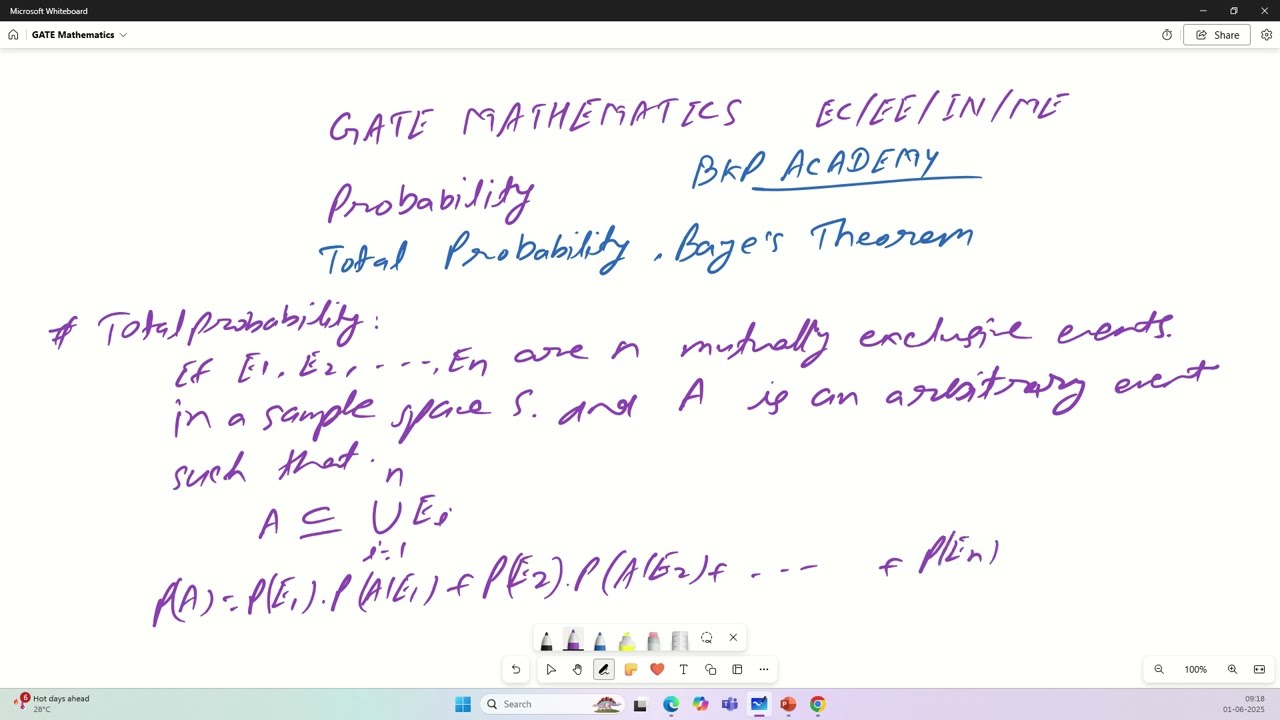 Microsoft Whiteboard
GATE Mathematics
Share
GATE MATHEMATICS EC/EE/IN/ME
BKP ACADEMY
Probability
Total Probability, Baye's Theorem
# Total probability:
If E1, E2, ---, En are n mutually exclusive events.
in a sample space S. and A is an arbitrary event
such that.
A ⊆ ⋃ᵢ₌₁ⁿ Ei
P(A) = P(E1).P(A|E1) + P(E2).P(A|E2) + . --- + P(En)
100%
6
Hot days ahead
28°C
Search
09:18
01-06-2025